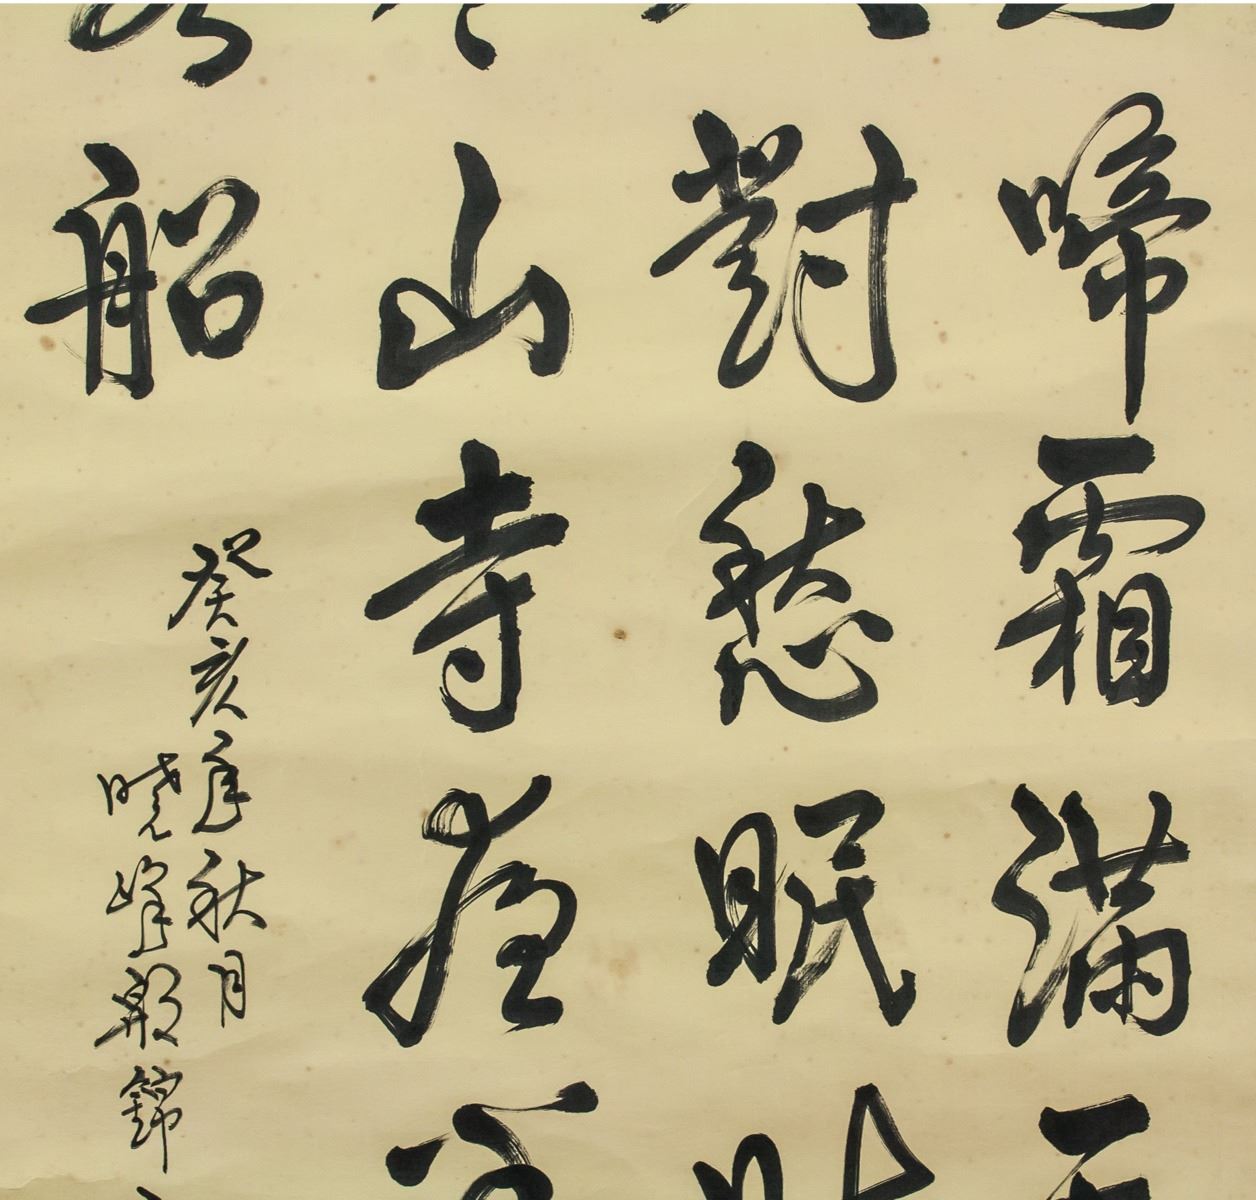 啼霜滿
對愁眠
山寺夜
船
癸亥年秋月
晓峰錦